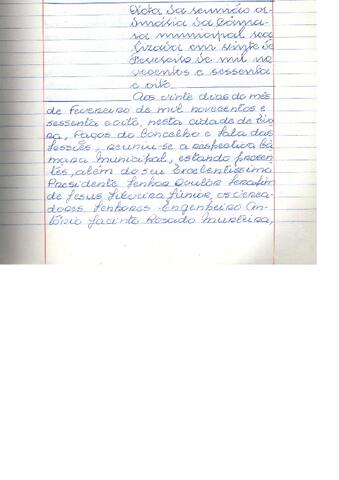 Acta da reunião or
dinária da Câma-
ra municipal rea
lizada em vinte de
Fevereiro de mil no
vecentos e sessenta
e oito
Aos vinte dias do mês
de Fevereiro de mil novecentos e
sessenta e oito, nesta cidade de Évo
ra, Paços do Concelho e Sala das
Sessões, reuniu-se a respectiva Câ
mara Municipal, estando presen
tes, além do seu Excelentíssimo
Presidente Senhor Doutor Serafim
de Jesus Silveira Júnior, os Verea-
dores Senhores Engenheiro An-
tónio Jacinto Rosado Murteira,